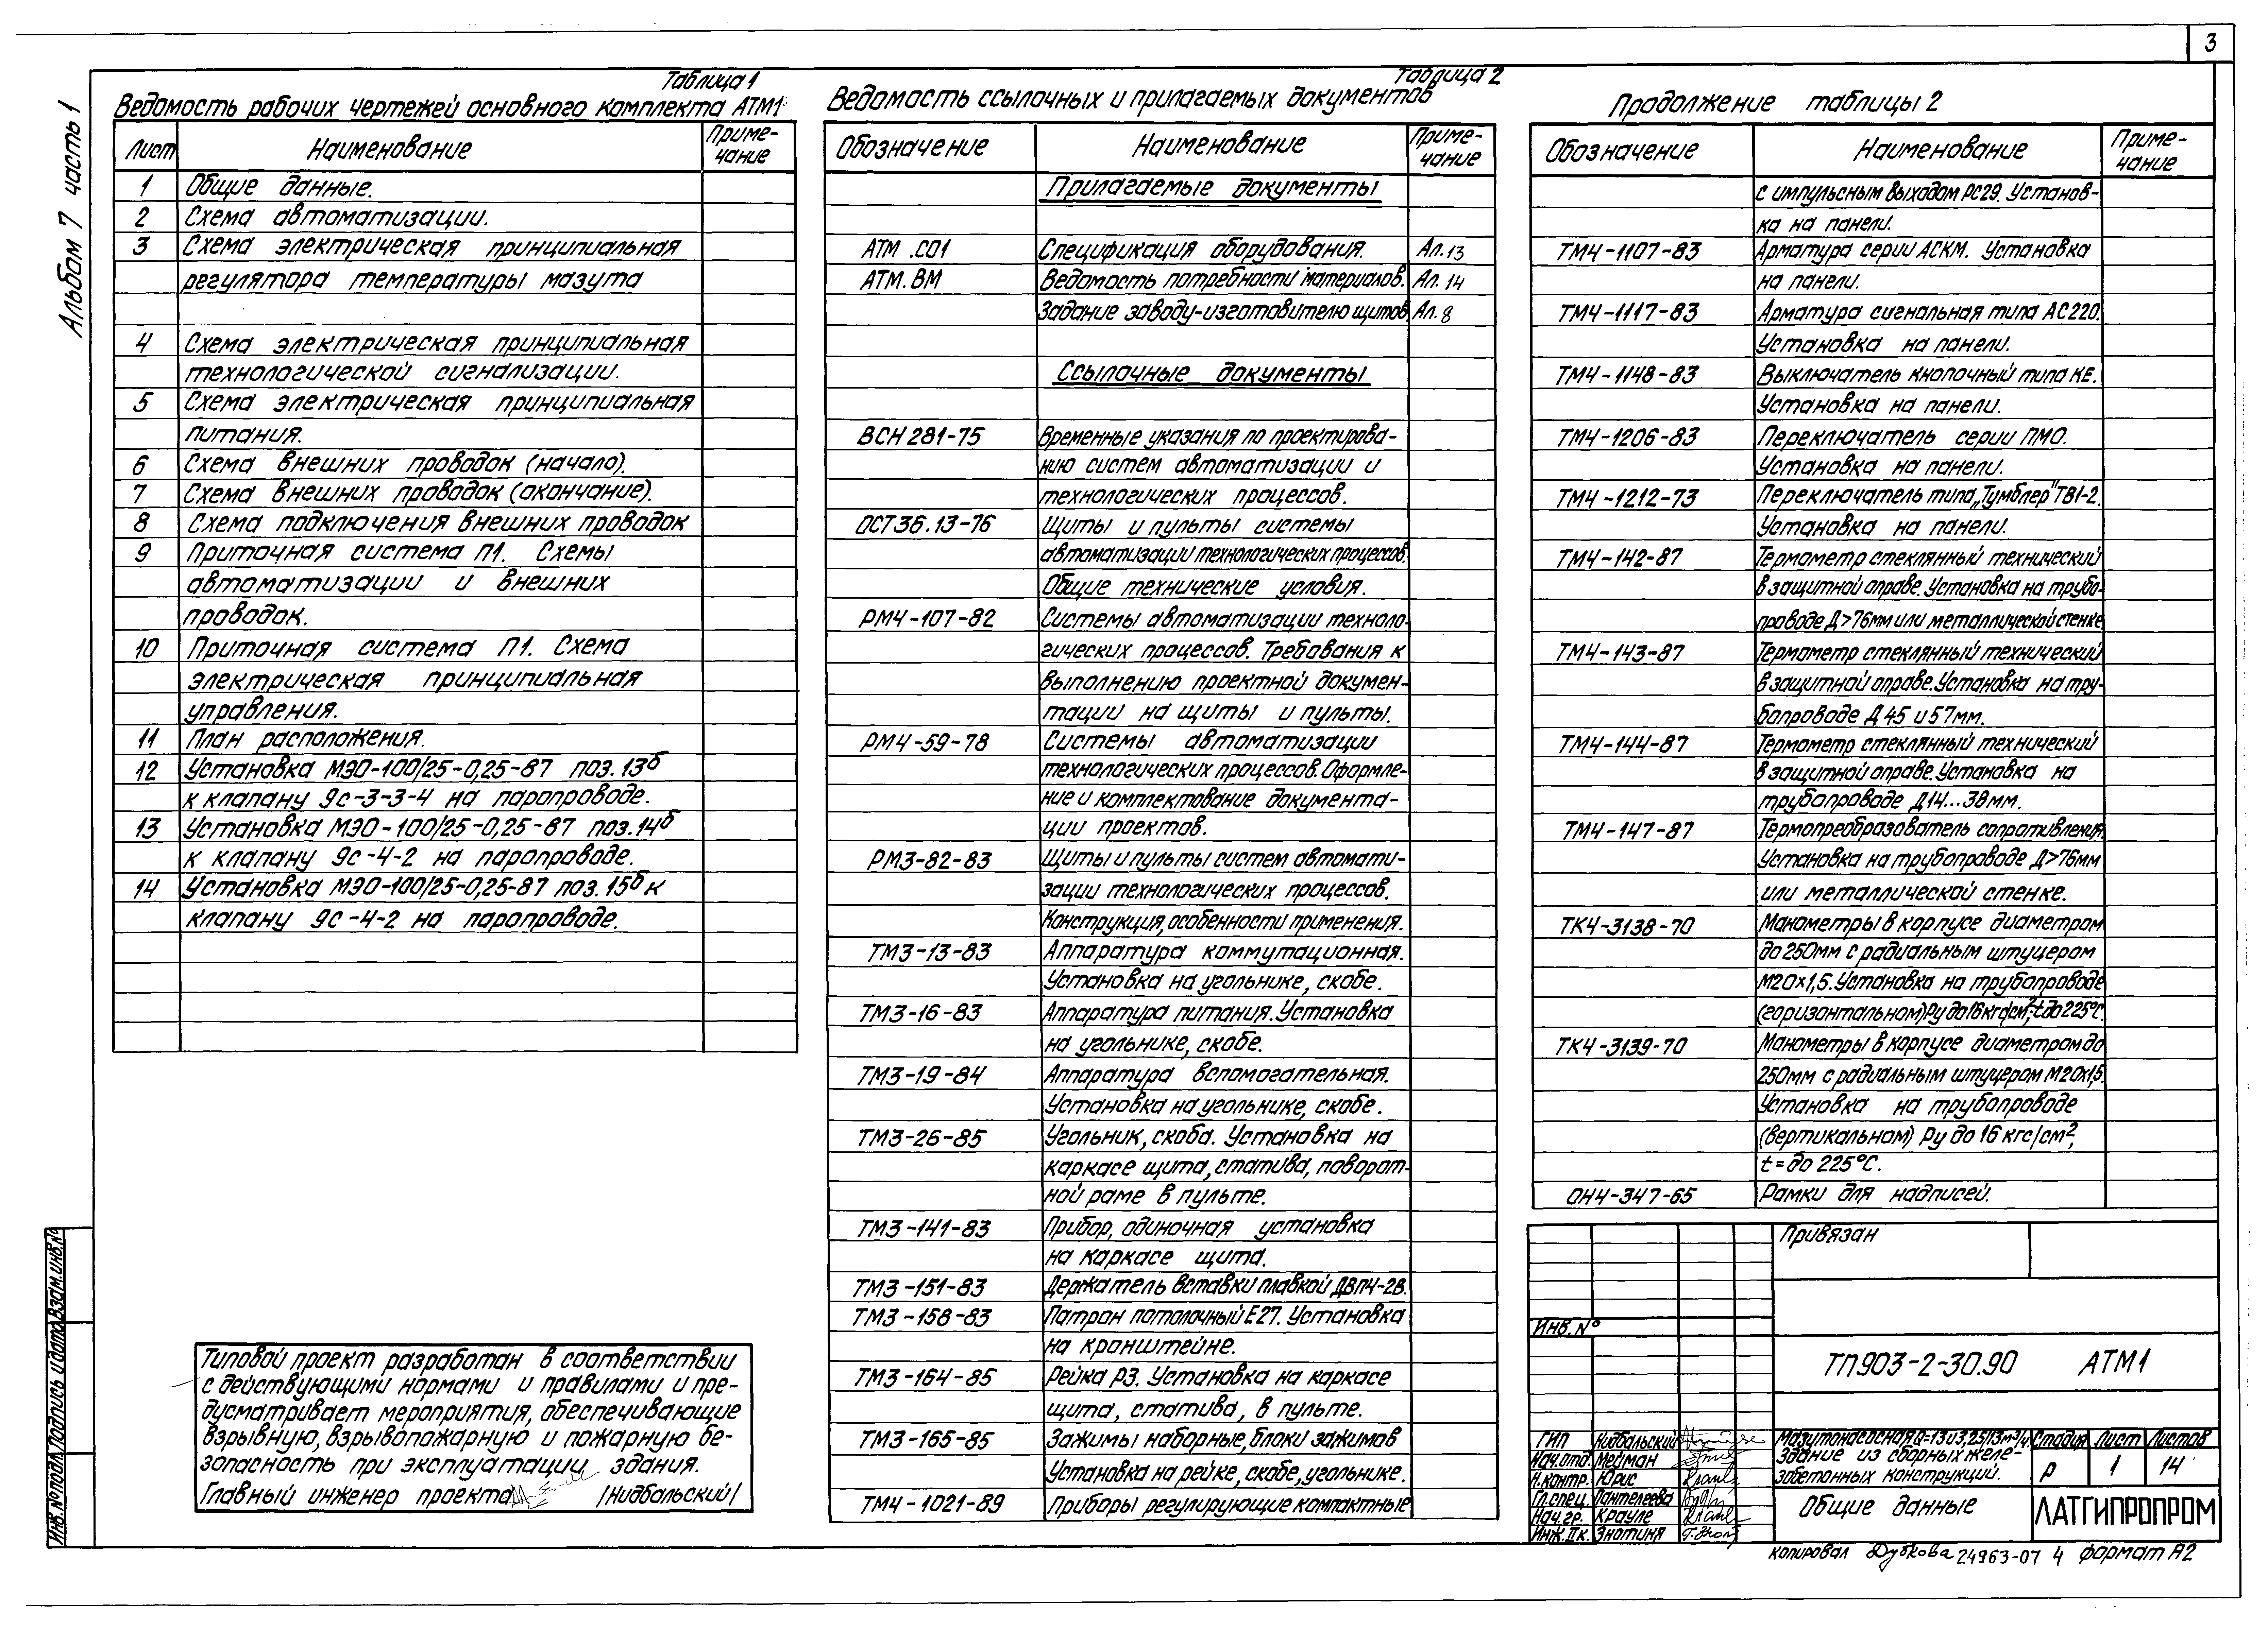 3
Альбом 7 часть 1
Таблица 1
Ведомость рабочих чертежей основного комплекта АТМ1
Лист Наименование Приме-
чание
1 Общие данные.
2 Схема автоматизации.
3 Схема электрическая принципиальная
регулятора температуры мазута
4 Схема электрическая принципиальная
технологической сигнализации.
5 Схема электрическая принципиальная
питания.
6 Схема внешних проводок (начало).
7 Схема внешних проводок (окончание).
8 Схема подключения внешних проводок
9 Приточная система П1. Схемы
автоматизации и внешних
проводок.
10 Приточная система П1. Схема
электрическая принципиальная
управления.
11 План расположения.
12 Установка МЭО-100/25-0,25-87 поз. 13б
к клапану 9с-3-3-4 на паропроводе.
13 Установка МЭО-100/25-0,25-87 поз. 14б
к клапану 9с-4-2 на паропроводе.
14 Установка МЭО-100/25-0,25-87 поз. 15б к
клапану 9с-4-2 на паропроводе.
Типовой проект разработан в соответствии
с действующими нормами и правилами и пре-
дусматривает мероприятия, обеспечивающие
взрывную, взрывопожарную и пожарную бе-
зопасность при эксплуатации здания.
Главный инженер проекта /Нидбальский/
Таблица 2
Ведомость ссылочных и прилагаемых документов
Обозначение Наименование Приме-
чание
Прилагаемые документы
АТМ.СО1 Спецификация оборудования. Ал.13
АТМ.ВМ Ведомость потребности материалов. Ал.14
Задание заводу-изготовителю щитов Ал.8
Ссылочные документы
ВСН 281-75 Временные указания по проектирова-
нию систем автоматизации и
технологических процессов.
ОСТ36.13-76 Щиты и пульты системы
автоматизации технологических процессов.
Общие технические условия.
РМ4-107-82 Системы автоматизации техноло-
гических процессов. Требования к
выполнению проектной докумен-
тации на щиты и пульты.
РМ4-59-78 Системы автоматизации
технологических процессов. Оформле-
ние и комплектование документа-
ции проектов.
РМ3-82-83 Щиты и пульты систем автомати-
зации технологических процессов.
Конструкция, особенности применения.
ТМ3-13-83 Аппаратура коммутационная.
Установка на угольнике, скобе.
ТМ3-16-83 Аппаратура питания. Установка
на угольнике, скобе.
ТМ3-19-84 Аппаратура вспомогательная.
Установка на угольнике, скобе.
ТМ3-26-85 Угольник, скоба. Установка на
каркасе щита, статива, поворот-
ной раме в пульте.
ТМ3-141-83 Прибор, одиночная установка
на каркасе щита.
ТМ3-151-83 Держатель вставки плавкой ДВП4-2В.
ТМ3-158-83 Патрон потолочный Е27. Установка
на кронштейне.
ТМ3-164-85 Рейка Р3. Установка на каркасе
щита, статива, в пульте.
ТМ3-165-85 Зажимы наборные, блоки зажимов
Установка на рейке, скобе, угольнике.
ТМ4-1021-89 Приборы регулирующие компактные
Продолжение таблицы 2
Обозначение Наименование Приме-
чание
с импульсным выходом РС29. Установ-
ка на панели.
ТМ4-1107-83 Арматура серии АСКМ. Установка
на панели.
ТМ4-1117-83 Арматура сигнальная типа АС220.
Установка на панели.
ТМ4-1148-83 Выключатель кнопочный типа КЕ.
Установка на панели.
ТМ4-1206-83 Переключатель серии ПМО.
Установка на панели.
ТМ4-1212-73 Переключатель типа „Тумблер" ТВ1-2.
Установка на панели.
ТМ4-142-87 Термометр стеклянный технический
в защитной оправе. Установка на трубо-
проводе Д>76мм или металлической стенке
ТМ4-143-87 Термометр стеклянный технический
в защитной оправе. Установка на тру-
бопроводе Д 45 и 57мм.
ТМ4-144-87 Термометр стеклянный технический
в защитной оправе. Установка на
трубопроводе Д14...38мм.
ТМ4-147-87 Термопреобразователь сопротивления.
Установка на трубопроводе Д>76мм
или металлической стенке.
ТК4-3138-70 Манометры в корпусе диаметром
до 250мм с радиальным штуцером
М20×1,5. Установка на трубопроводе
(горизонтальном) Ру до 16 кгс/см², t до 225°С.
ТК4-3139-70 Манометры в корпусе диаметром до
250мм с радиальным штуцером М20х1,5.
Установка на трубопроводе
(вертикальном) Ру до 16 кгс/см²,
t = до 225°С.
ОН4-347-65 Рамки для надписей.
Привязан
Инв. №
ТП903-2-30.90 АТМ1
ГИП Нидбальский
Нач.отд Мейман
Н.контр. Юрис
Гл.спец. Пантелеева
Нач.гр. Крауле
Инж.IIк. Знотиня
Мазутонасосная Q=13 и 3,25/13м³/ч.
Здание из сборных желе-
зобетонных конструкций.
Стадия Лист Листов
Р 1 14
Общие данные
ЛАТГИПРОПРОМ
копировал Дубкова 24963-07 4 формат А2
Инв.№подл. Подпись и дата Взам.инв.№